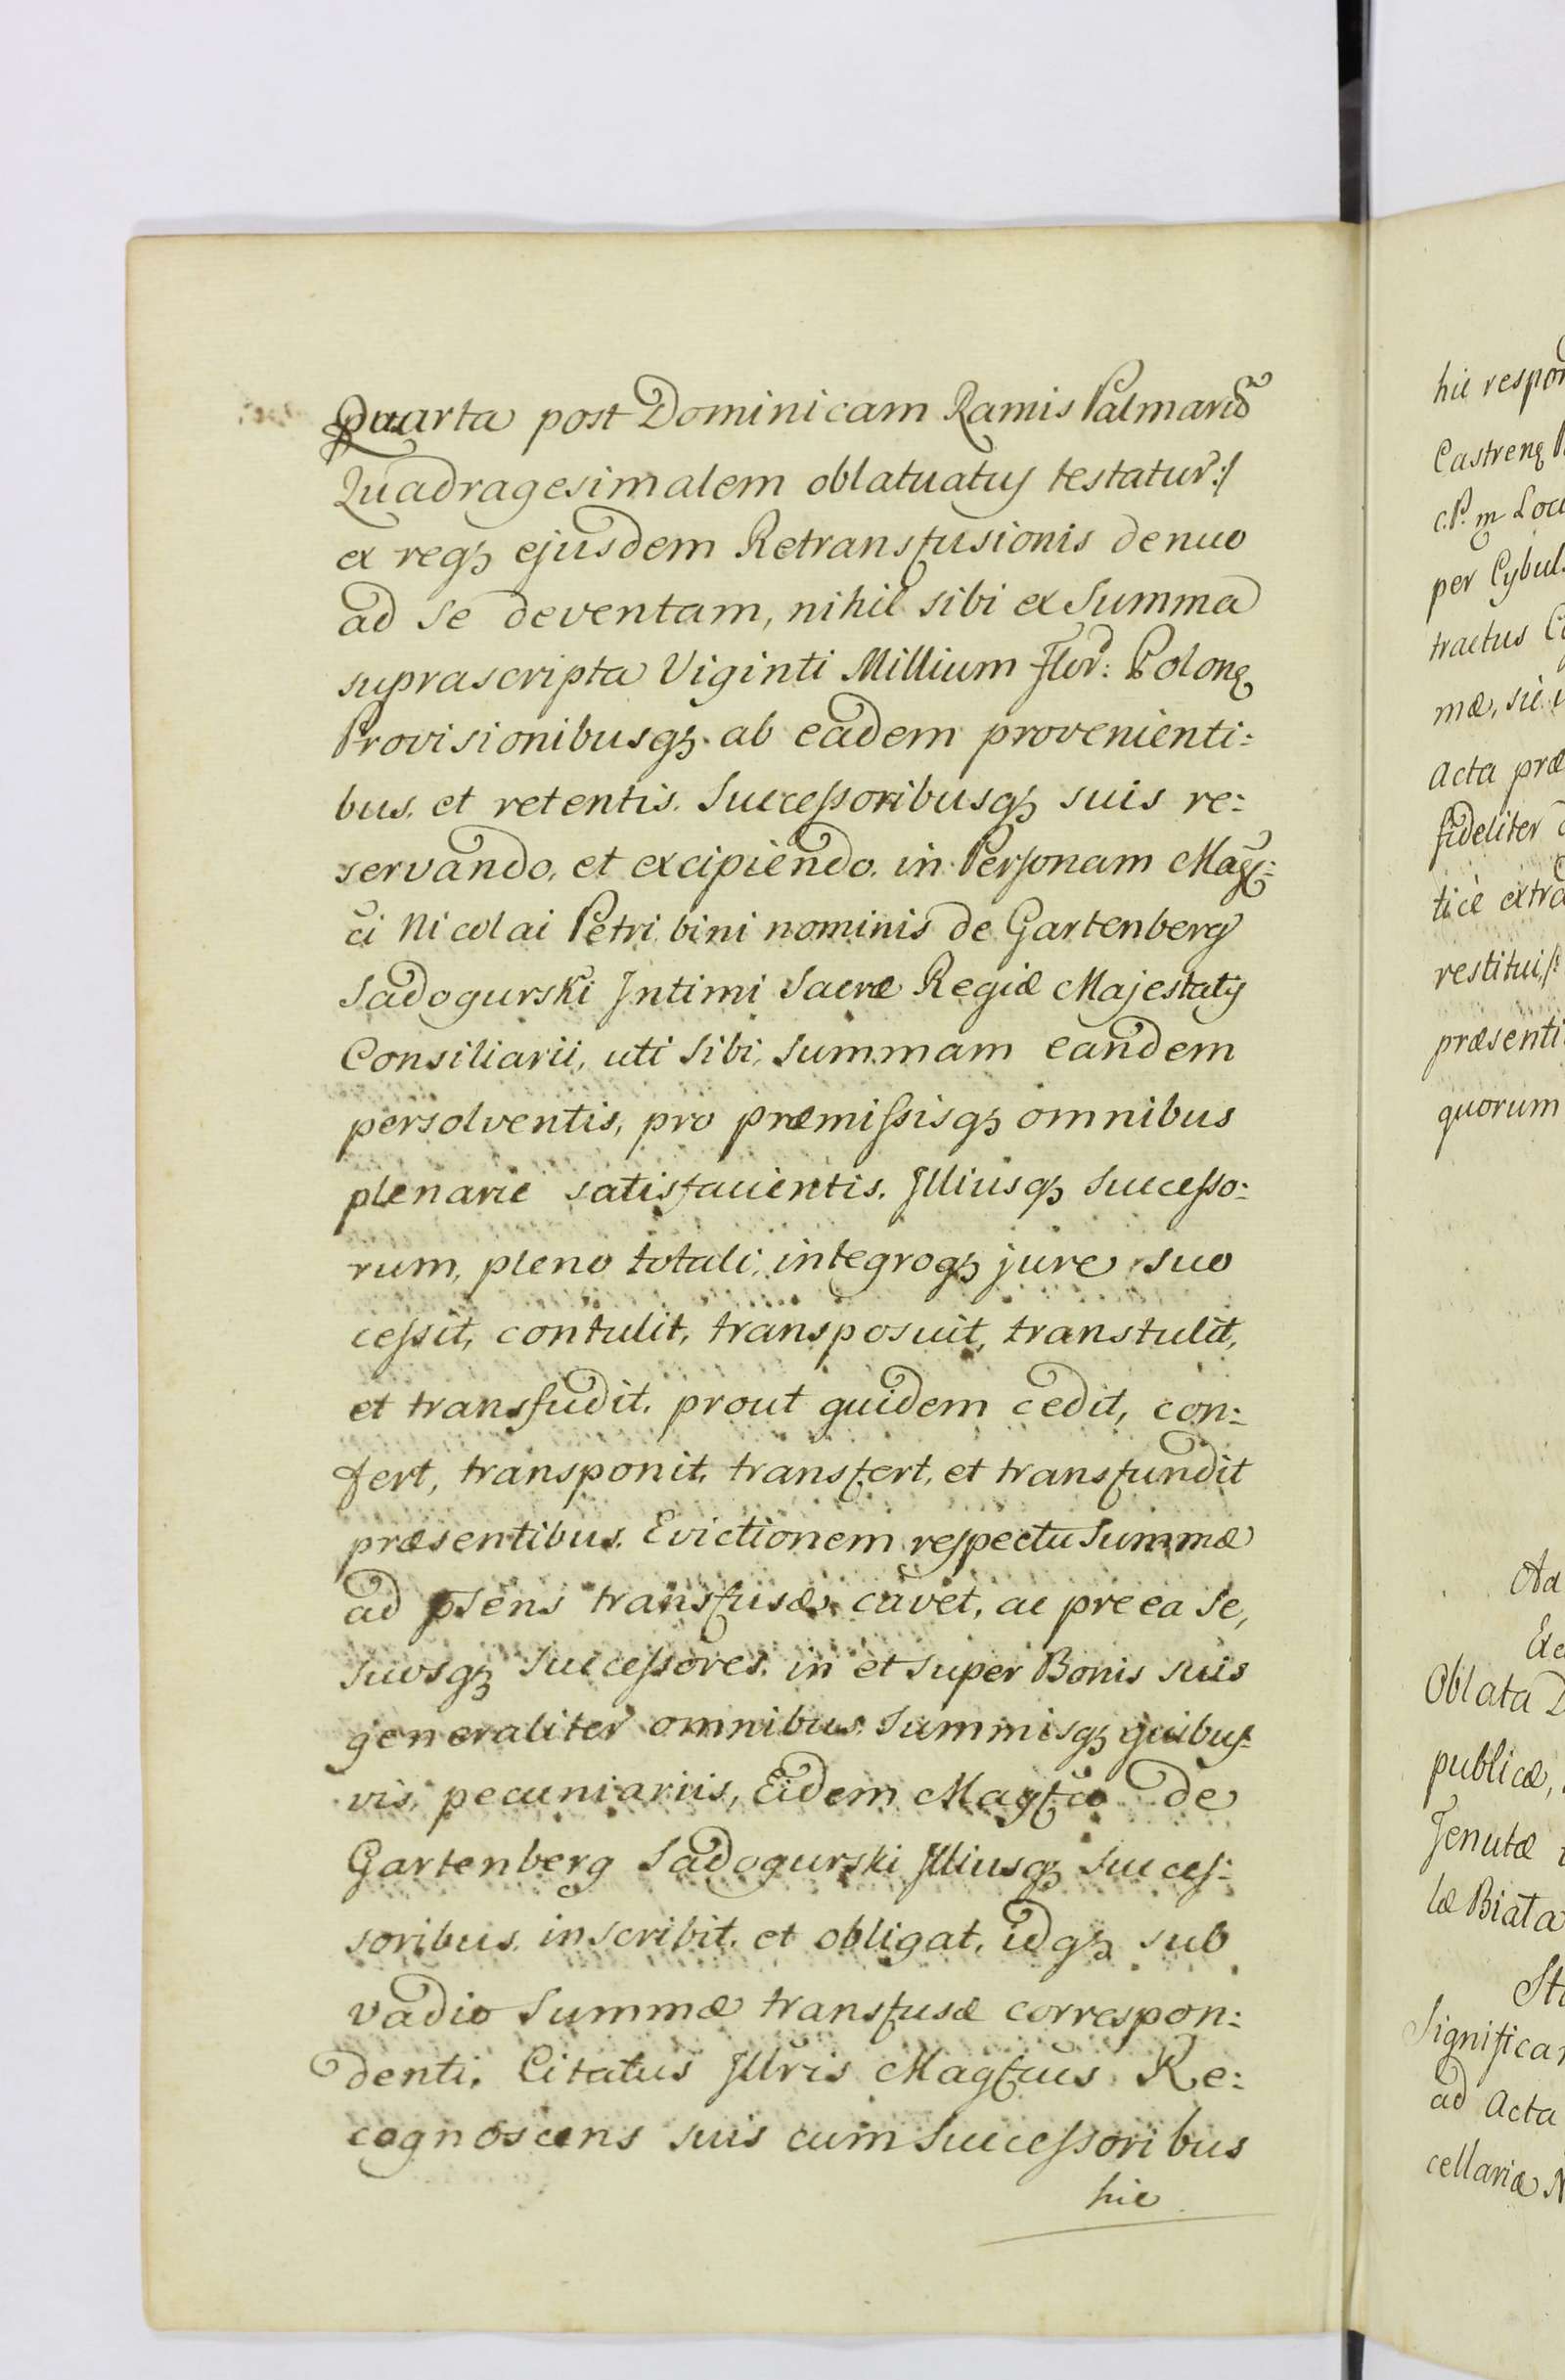 Quarta post Dominicam Ramis Palmarũ
Quadragesimalem oblatuatus testatur:/
ex reqꝫ ejusdem Retransfusionis denuo
ad se deventam, nihil sibi ex Summa
suprascripta Viginti Millium Flor: Polonꝫ
Provisionibusqꝫ ab eadem provenienti:
bus. et retentis. Successoribusqꝫ suis re:
servando, et excipiendo. in Personam Magf:
ci Nicolai Petri bini nominis de Gartenberg
Sadogurski Intimi Sacræ Regiæ Majestatis
Consiliarii, uti sibi, Summam eandem
persolventis, pro præmissisqꝫ omnibus
plenarie satisfacientis. Illiusqꝫ Successo:
rum, pleno totali, integroqꝫ jure suo
cessit, contulit, transposuit, transtulit,
et transfudit. prout quidem cedit, con:
fert, transponit, transfert, et transfundit
præsentibus. Evictionem respectu Summæ
ad psens transfusæ cavet, ac pre ea se,
suosqꝫ Successores. in et super Bonis suis
generaliter omnibus. Summisqꝫ quibus:
vis, pecuniariis, Eidem Magfco de
Gartenberg Sadogurski Illiusqꝫ Succes:
soribus. inscribit. et obligat, idqꝫ sub
vadio Summæ transfusæ correspon:
denti. Citatus Illris Magfcus Re:
cognoscens suis cum Successoribus
hic
hic respon
Castrenꝫ
c.P. m Loc
per Cybul
tractus C
mæ, sic
Acta præ
fideliter
tice extra
restituiss
præsenti
quorum
Ad
Oblata
publicæ,
Tenutæ
læ Biata
Significa
ad Acta
cellariæ N